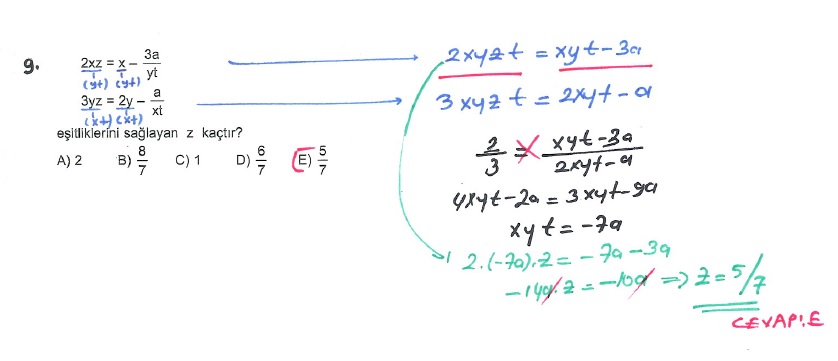 9. 2xz = x - 3a/yt
(yt) (yt)
3yz = 2y - a/xt
(xt) (xt)
eşitliklerini sağlayan z kaçtır?
A) 2 B) 8/7 C) 1 D) 6/7 E) 5/7
2xyzt = xyt-3a
3xyzt = 2xyt-a
2/3 = xyt-3a/2xyt-a
4xyt-2a = 3xyt-9a
xyt = -7a
2.(-7a).z = -7a-3a
-14a.z = -10a => z = 5/7
CEVAP:E